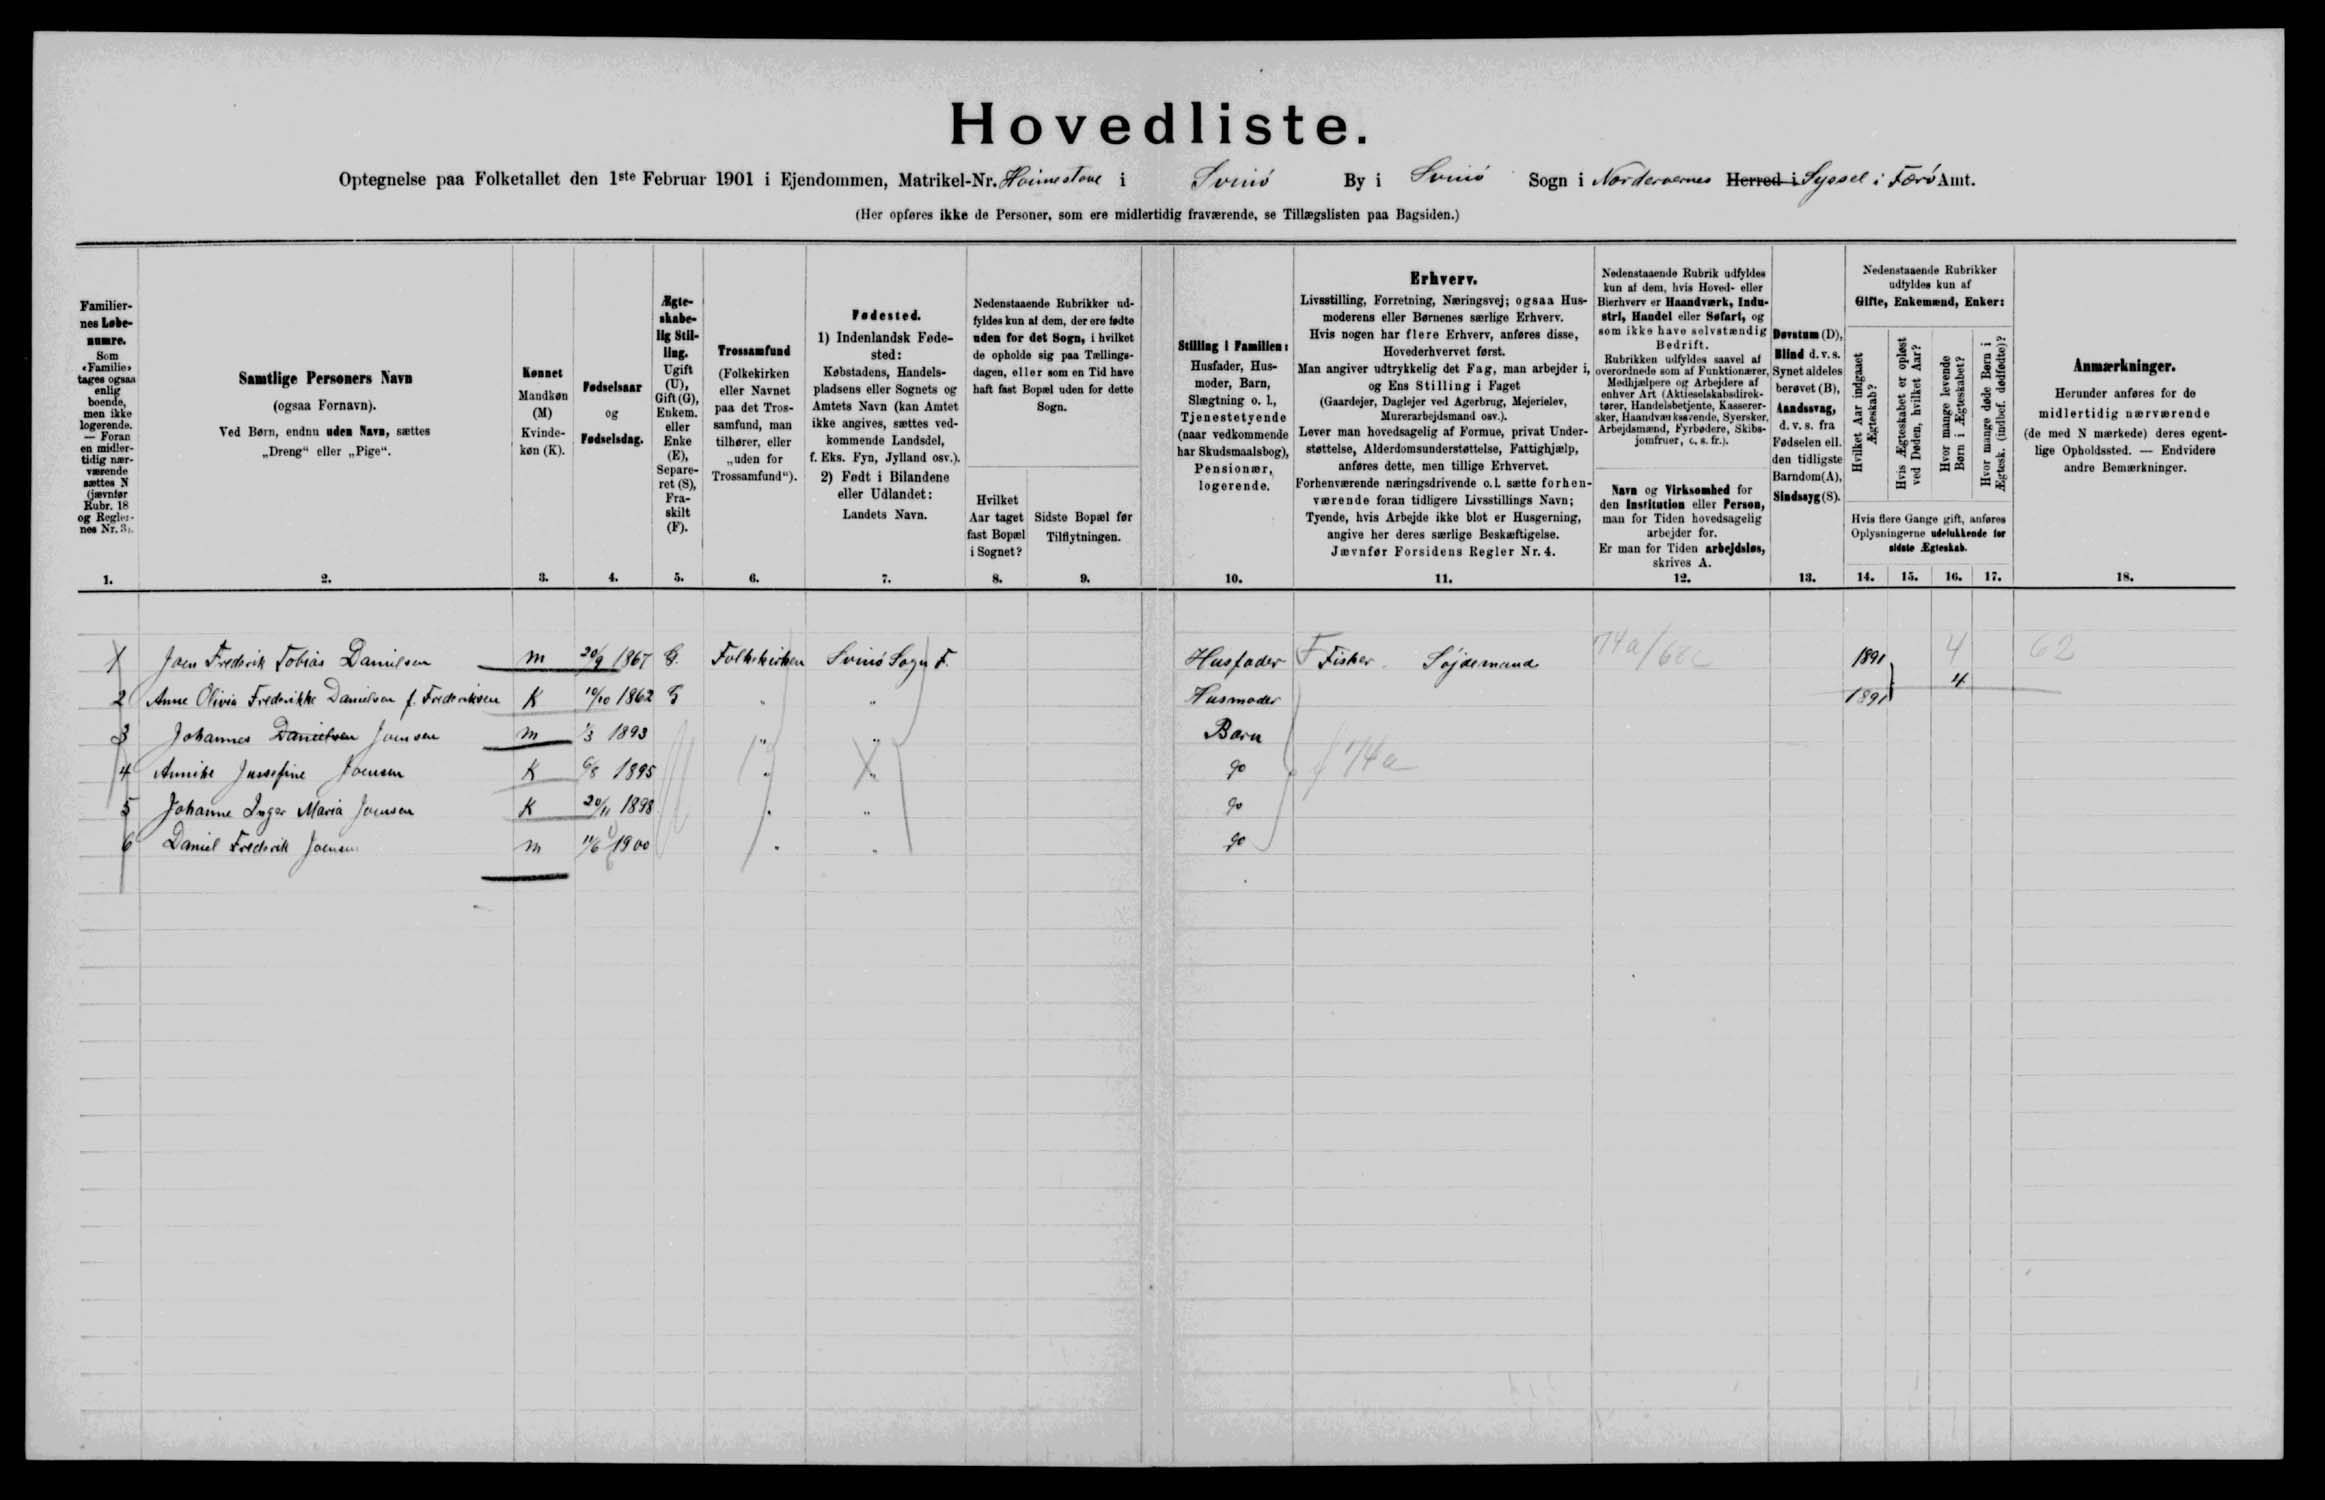 Hovedliste.
Optegnelse paa Folketallet den 1ste Februar 1901 i Ejendommen, Matrikel-Nr. Hoimestove i Svinö By i Svinö Sogn i Norderoernes Herred i Syssel i Færö Amt.
(Her opføres ikke de Personer, som ere midlertidig fraværende, se Tillægslisten paa Bagsiden.)
Familier-
nes Løbe-
numre.
Som
«Familie»
tages ogsaa
enlig
boende,
men ikke
logerende.
— Foran
en midler-
tidig nær-
værende
sættes N
(jævnfør
Rubr. 18
og Regler-
nes Nr. 3).
1.
Samtlige Personers Navn
(ogsaa Fornavn).
Ved Børn, endnu uden Navn, sættes
„Dreng“ eller „Pige“.
2.
Kønnet
Mandkøn
(M)
Kvinde-
køn (K).
3.
Fødselsaar
og
Fødselsdag.
4.
Ægte-
skabe-
lig Stil-
ling.
Ugift
(U),
Gift (G),
Enkem.
eller
Enke
(E),
Separe-
ret (S),
Fra-
skilt
(F).
5.
Trossamfund
(Folkekirken
eller Navnet
paa det Tros-
samfund, man
tilhører, eller
„uden for
Trossamfund“).
6.
Fødested.
1) Indenlandsk Føde-
sted:
Købstadens, Handels-
pladsens eller Sognets og
Amtets Navn (kan Amtet
ikke angives, sættes ved-
kommende Landsdel,
f. Eks. Fyn, Jylland osv.).
2) Født i Bilandene
eller Udlandet:
Landets Navn.
7.
Nedenstaaende Rubrikker ud-
fyldes kun af dem, der ere fødte
uden for det Sogn, i hvilket
de opholde sig paa Tællings-
dagen, eller som en Tid have
haft fast Bopæl uden for dette
Sogn.
Hvilket
Aar taget
fast Bopæl
i Sognet?
8.
Sidste Bopæl før
Tilflytningen.
9.
Stilling i Familien:
Husfader, Hus-
moder, Barn,
Slægtning o. l.,
Tjenestetyende
(naar vedkommende
har Skudsmaalsbog),
Pensionær,
logerende.
10.
Erhverv.
Livsstilling, Forretning, Næringsvej; ogsaa Hus-
moderens eller Børnenes særlige Erhverv.
Hvis nogen har flere Erhverv, anføres disse,
Hovederhvervet først.
Man angiver udtrykkelig det Fag, man arbejder i,
og Ens Stilling i Faget
(Gaardejer, Daglejer ved Agerbrug, Mejerielev,
Murerarbejdsmand osv.).
Lever man hovedsagelig af Formue, privat Under-
støttelse, Alderdomsunderstøttelse, Fattighjælp,
anføres dette, men tillige Erhvervet.
Forhenværende næringsdrivende o. l. sætte forhen-
værende foran tidligere Livsstillings Navn;
Tyende, hvis Arbejde ikke blot er Husgerning,
angive her deres særlige Beskæftigelse.
Jævnfør Forsidens Regler Nr. 4.
11.
Nedenstaaende Rubrik udfyldes
kun af dem, hvis Hoved- eller
Bierhverv er Haandværk, Indu-
stri, Handel eller Søfart, og
som ikke have selvstændig
Bedrift.
Rubrikken udfyldes saavel af
overordnede som af Funktionærer,
Medhjælpere og Arbejdere af
enhver Art (Aktieselskabsdirek-
tører, Handelsbetjente, Kasserer-
sker, Haandværkssvende, Syersker,
Arbejdsmænd, Fyrbødere, Skibs-
jomfruer, o. s. fr.).
Navn og Virksomhed for
den Institution eller Person,
man for Tiden hovedsagelig
arbejder for.
Er man for Tiden arbejdsløs,
skrives A.
12.
Døvstum (D),
Blind d. v. s.
Synet aldeles
berøvet (B),
Aandssvag,
d. v. s. fra
Fødselen ell.
den tidligste
Barndom (A),
Sindssyg (S).
13.
Nedenstaaende Rubrikker
udfyldes kun af
Gifte, Enkemænd, Enker:
Hvilket Aar indgaaet
Ægteskab?
Hvis Ægteskabet er opløst
ved Døden, hvilket Aar?
Hvor mange levende
Børn i Ægteskabet?
Hvor mange døde Børn i
Ægtesk. (indbef. dødfødte)?
Hvis flere Gange gift, anføres
Oplysningerne udelukkende for
sidste Ægteskab.
14. 15. 16. 17.
Anmærkninger.
Herunder anføres for de
midlertidig nærværende
(de med N mærkede) deres egent-
lige Opholdssted. — Endvidere
andre Bemærkninger.
18.
1 Joen Fredrik Tobias Danielsen m 20/9 1867 G. Folkekirken Svinö Sogn F. Husfader F Fisker. Söjdemand 74a/68c 1891 4 62
2 Anne Olivia Fredrikke Danielsen f. Frederiksen K 10/10 1862 G " " Husmoder 1891 4
3 Johannes Danielsen Joensen m 1/3 1893 " " Barn
4 Annike Jussefine Joensen K 6/8 1895 " " do f 74a
5 Johanne Inger Maria Joensen K 20/11 1898 " " do
6 Daniel Fredrik Joensen m 11/6 1900 " " do